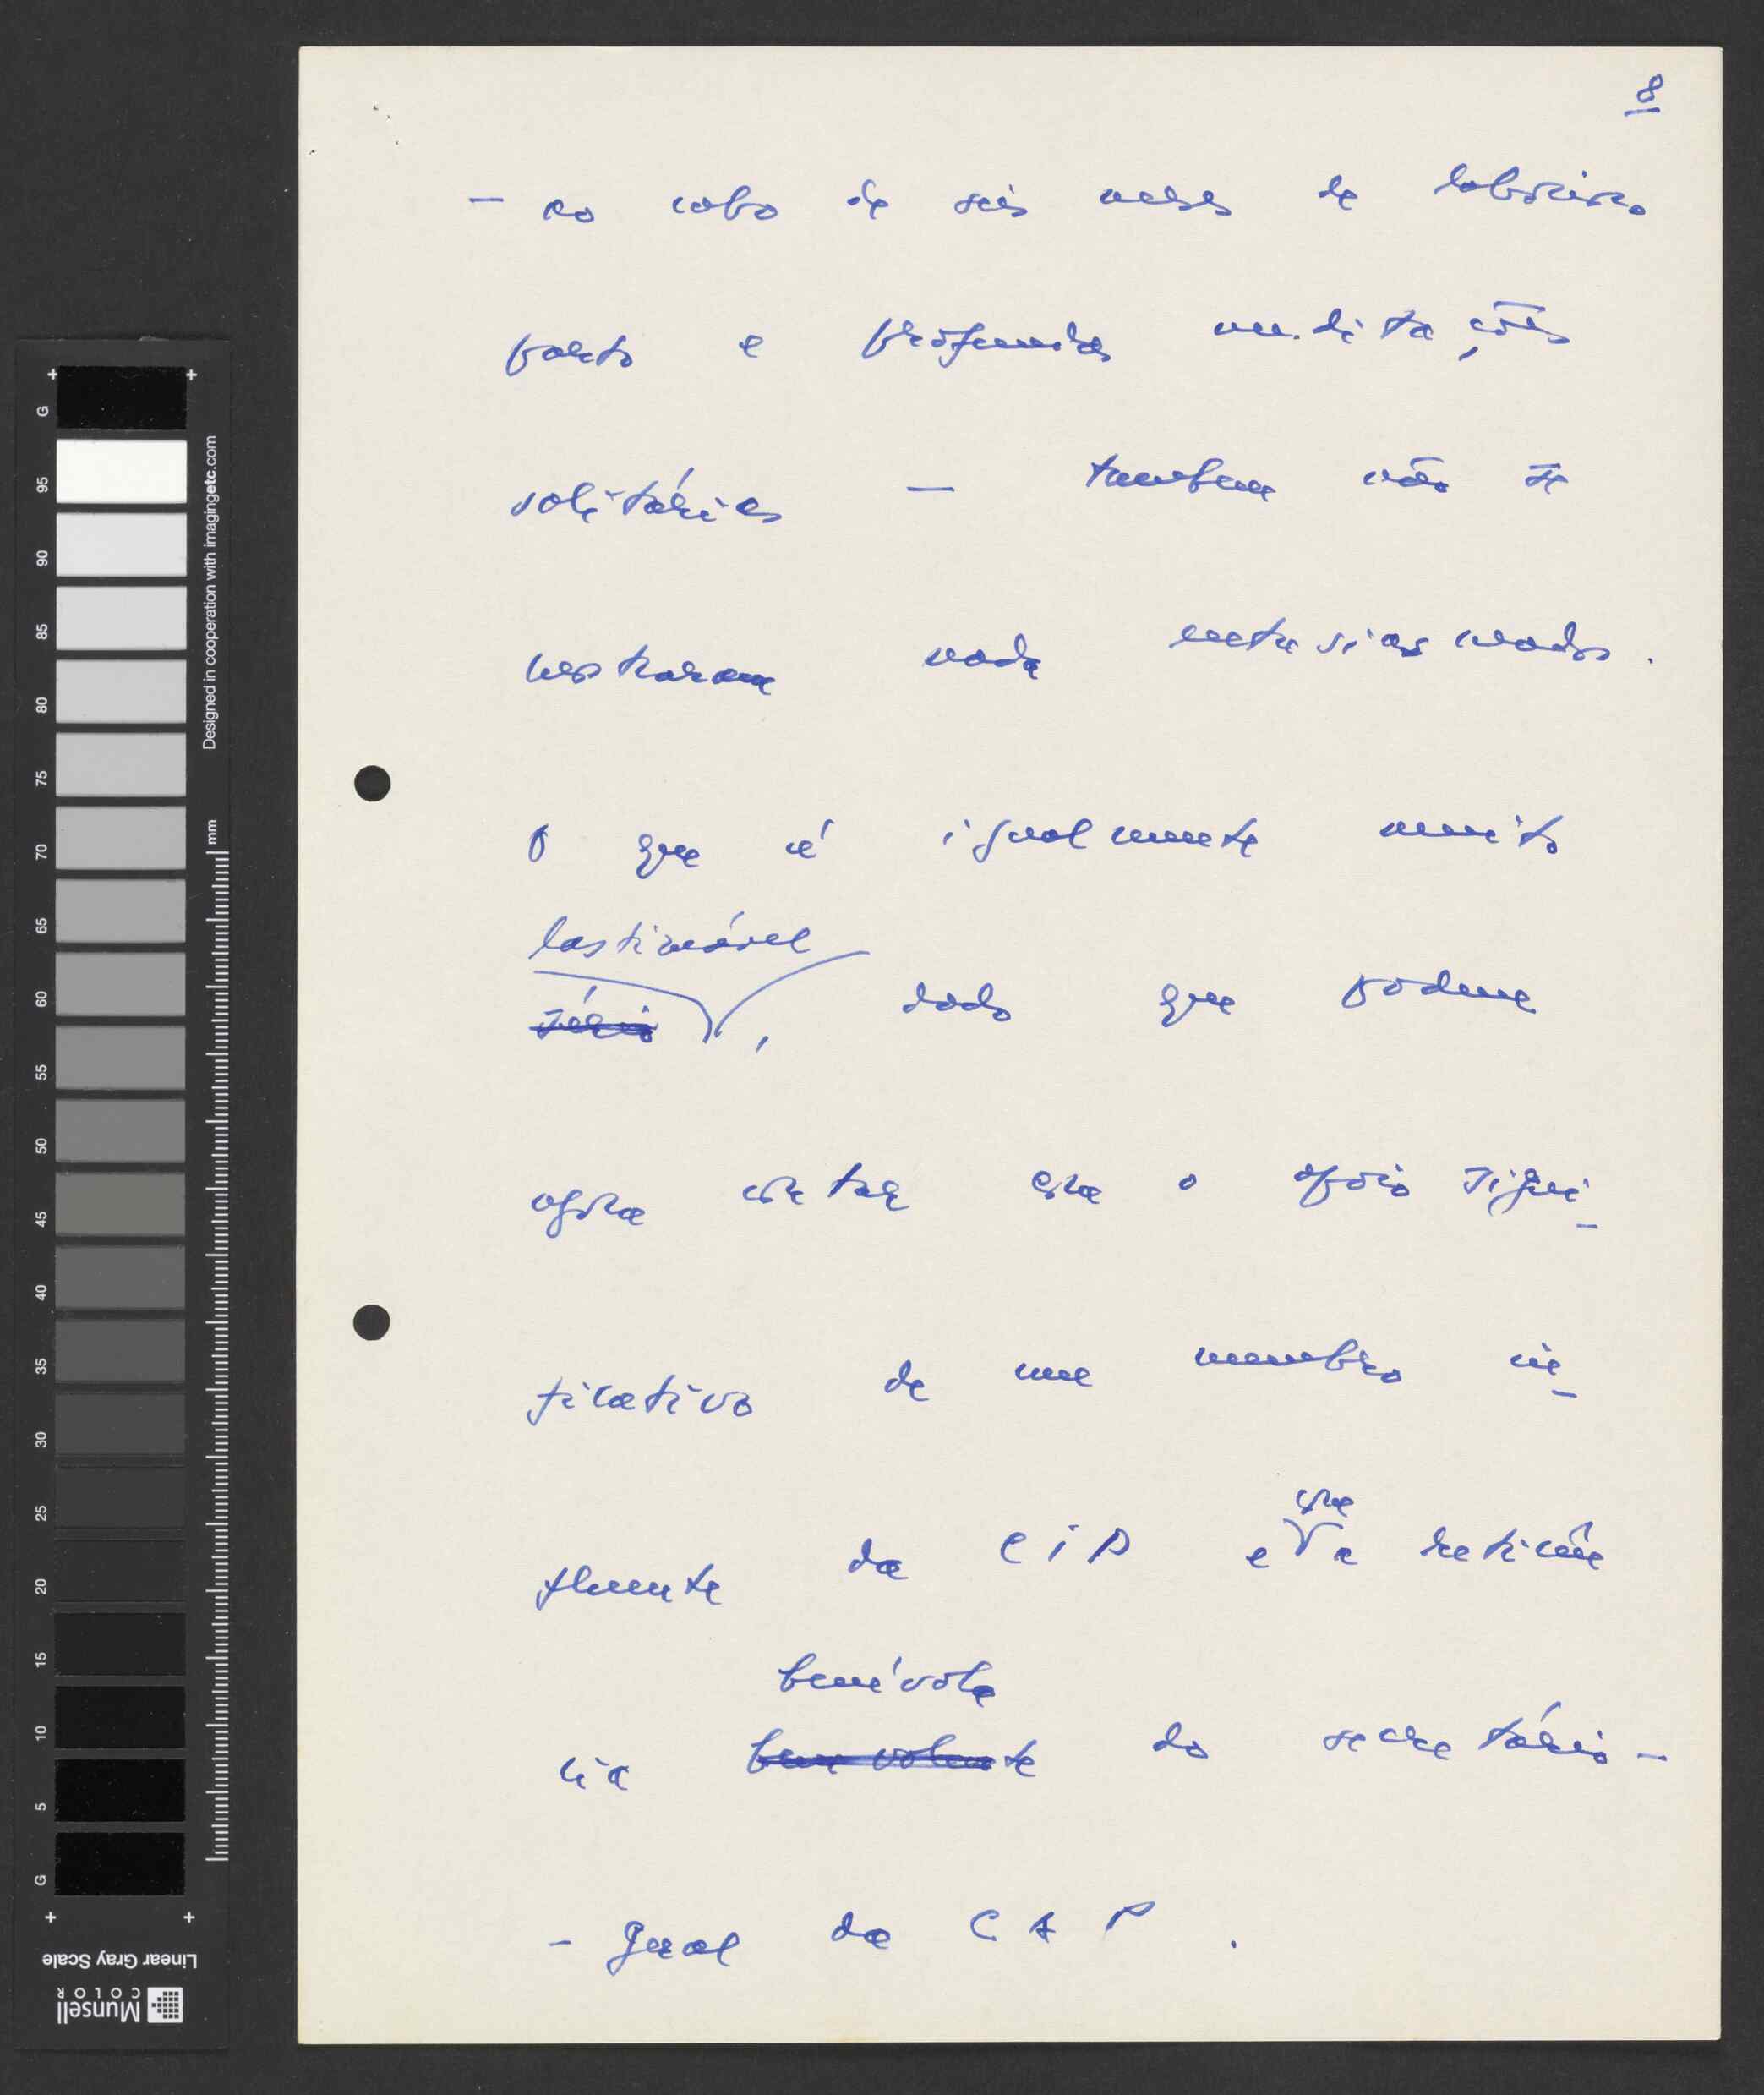 8
- ao cabo de seis meses de laborioso
parto e profundas meditações
solitárias — tambem não se
mostraram nada entusiasmados.
O que é igualmente muito
lastimável
sério, dado que podem
agora contar com o apoio signi-
ficativo de um membro in-
fluente da CIP e com a reticên
cia benévola
benevolente do secretário-
- geral da CAP.
G 95 90 85 80 75 70 65 60 55 50 45 40 35 30 25 20 15 10 5 G
mm
Designed in cooperation with imagingetc.com
Linear Gray Scale
Munsell
COLOR